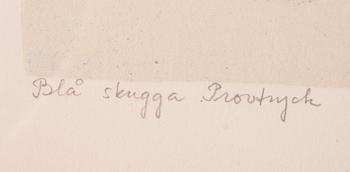 Blå skugga. Provtryck